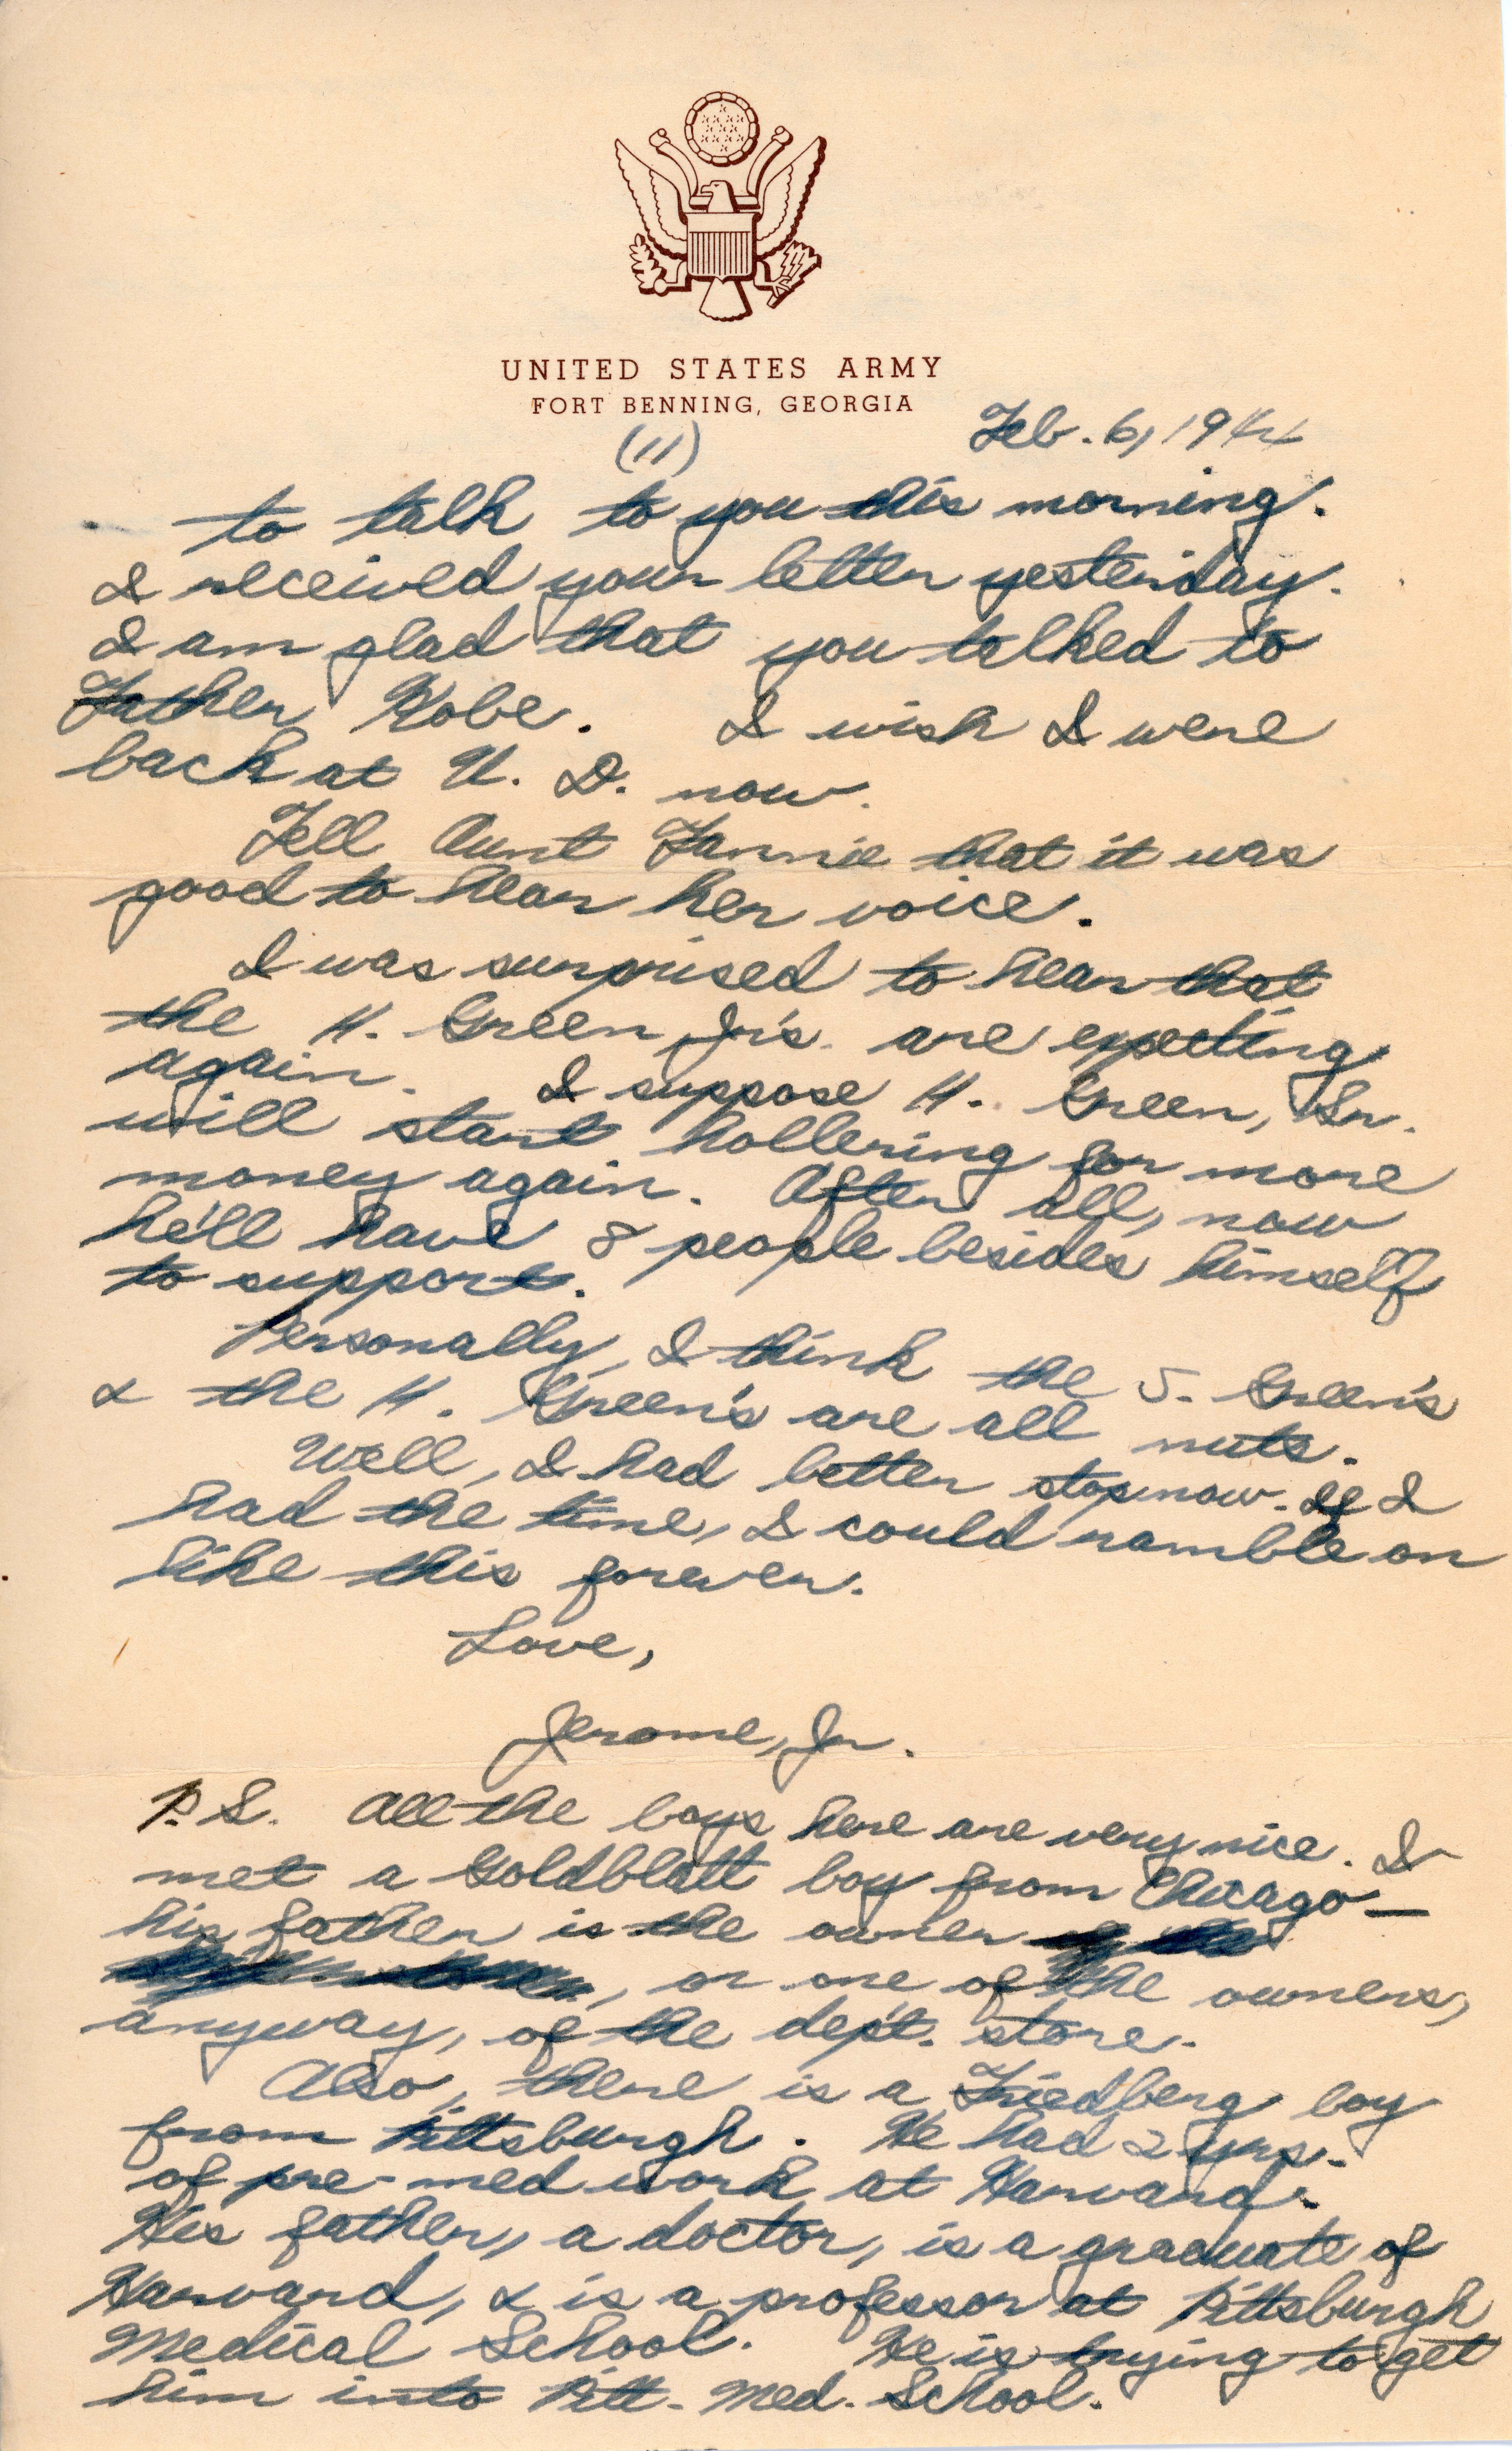 UNITED STATES ARMY
FORT BENNING, GEORGIA
(11)
Feb. 6, 1944
to talk to you this morning.
I received your letter yesterday.
I am glad that you talked to
Father Kobe. I wish I were
back at U. D. now.
Tell Aunt Fannie that it was
good to hear her voice.
I was surprised to hear that
the H. Green, Jr's. are expecting
again. I suppose H. Green, Sr.
will start hollering for more
money again. After all, now
he'll have 8 people besides himself
to support.
Personally, I think the J. Green's
& the H. Green's are all nuts.
Well, I had better stop now. If I
had the time, I could ramble on
like this forever.
Love,
Jerome, Jr.
P.S. All the boys here are very nice. I
met a Goldblatt boy from Chicago —
his father is the owner of the
, or one of the owners,
anyway, of the dep't. store.
Also, there is a Friedberg boy
from Pittsburgh. He had 2 yrs.
of pre-med work at Harvard.
His father, a doctor, is a graduate of
Harvard, & is a professor at Pittsburgh
Medical School. He is trying to get
him into Pitt. Med. School.